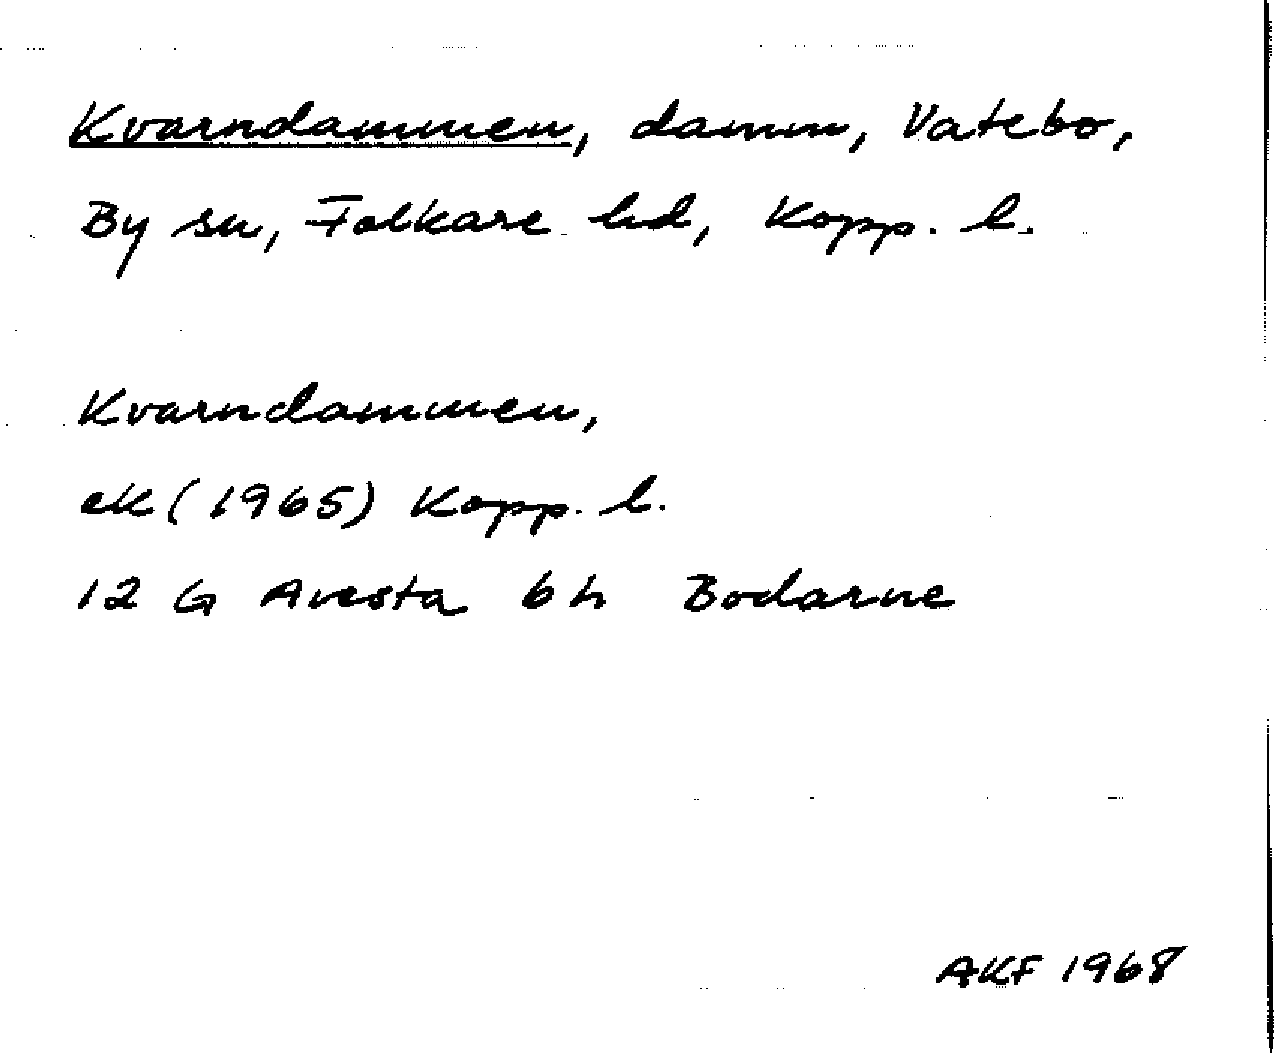 Kvarndammen, damm, Vatebo,
By sn, Folkare hd, Kopp. l.
Kvarndammen,
ek (1965) Kopp. l.
12 G Avesta 6 h Bodarne
AKF 1968